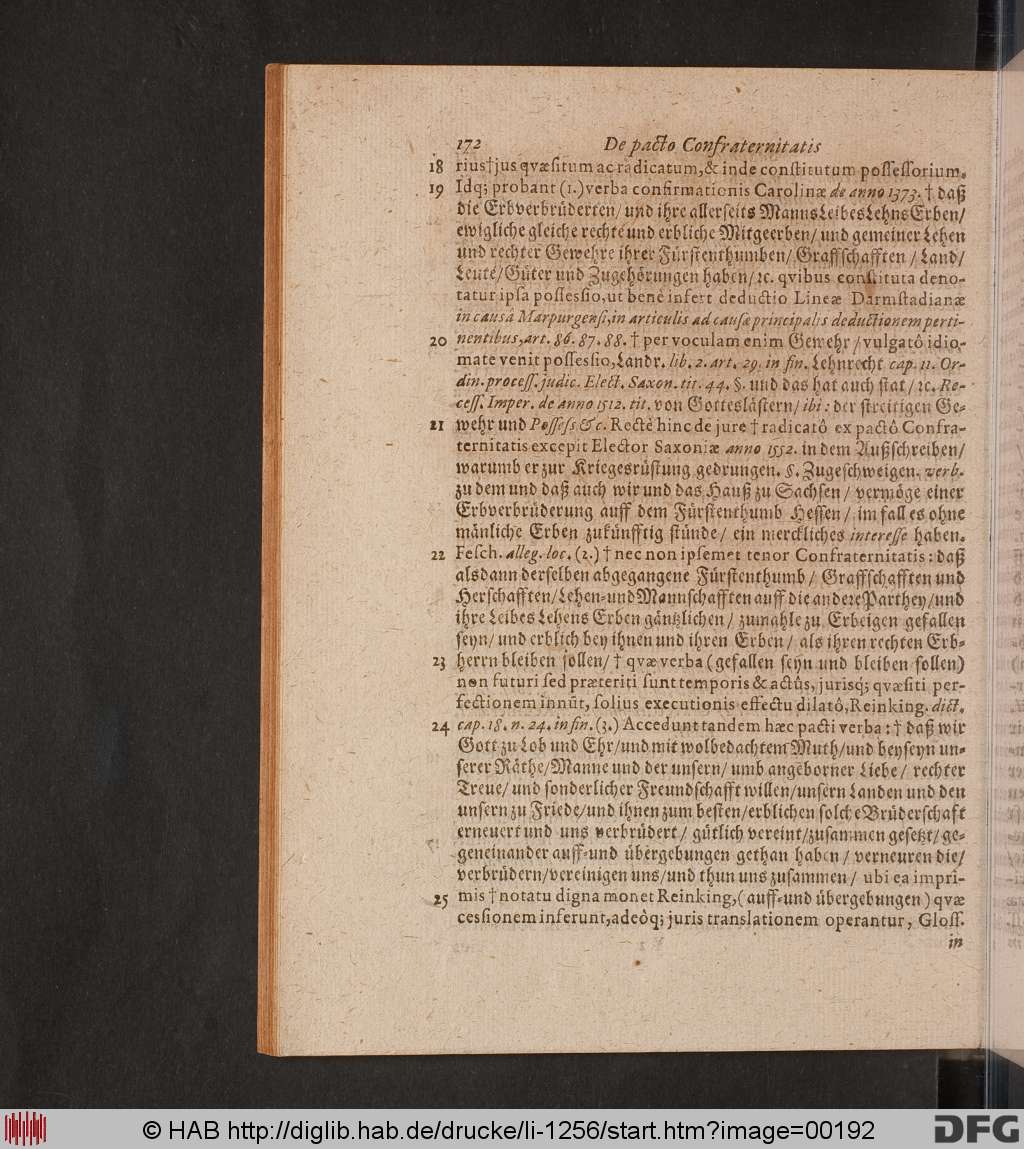 172 De pacto Confraternitatis
18 rius†jus qvæsitum ac radicatum, & inde constitutum possessorium.
19 Idq; probant (1.) verba confirmationis Carolinæ de anno 1373. † daß
die Erbverbrüderten/ und ihre allerseits MannsLeibesLehnsErben/
ewigliche gleiche rechte und erbliche Mitgeerben/ und gemeiner Lehen
und rechter Gewehre ihrer Fürstenthumben/ Graffschafften/ Land/
Leute/ Güter und Zugehörungen haben/ ꝛc. qvibus constituta deno-
tatur ipsa possessio, ut benè infert deductio Lineæ Darmstadianæ
in causâ Marpurgensi, in articulis ad causæ principalis deductionem perti-
20 nentibus, art. 86. 87. 88. † per voculam enim Gewehr/ vulgatô idio-
mate venit possessio, Landr. lib. 2. art. 29. in fin. Lehnrecht cap. 11. Or-
din. process. judic. Elect. Saxon. tit. 44. §. und das hat auch stat/ ꝛc. Re-
cess. Imper. de anno 1512. tit. von Gotteslästern/ ibi: der streitigen Ge-
21 wehr und Possess &c. Rectè hinc de jure † radicatô ex pactô Confra-
ternitatis excepit Elector Saxoniæ anno 1552. in dem Außschreiben/
warumb er zur Kriegesrüstung gedrungen. §. Zugeschweigen. verb.
zu dem und daß auch wir und das Hauß zu Sachsen/ vermöge einer
Erbverbrüderung auff dem Fürstenthumb Hessen/ im fall es ohne
mänliche Erben zukünfftig stünde/ ein merckliches interesse haben.
22 Fesch. alleg. loc. (2.) † nec non ipsemet tenor Confraternitatis: daß
alsdann derselben abgegangene Fürstenthumb/ Graffschafften und
Herschafften/ Lehen-und Mannschafften auff die andere Parthey/ und
ihre Leibes Lehens Erben gäntzlichen/ zumahle zu Erbeigen gefallen
seyn/ und erblich bey ihnen und ihren Erben/ als ihren rechten Erb-
23 herrn bleiben sollen/ † qvæ verba (gefallen seyn und bleiben sollen)
non futuri sed præteriti sunt temporis & actûs, jurisq; qvæsiti per-
fectionem innũt, solius executionis effectu dilatô, Reinking. dict.
24 cap. 18. n. 24. in fin. (3.) Accedunt tandem hæc pacti verba: † daß wir
Gott zu Lob und Ehr/ und mit wolbedachtem Muth/ und beyseyn un-
serer Räthe/ Manne und der unsern/ umb angeborner Liebe/ rechter
Treue/ und sonderlicher Freundschafft willen/ unsern Landen und den
unsern zu Friede/ und ihnen zum besten/ erblichen solche Brüderschaft
erneuert und uns verbrüdert/ gütlich vereint/ zusammen gesetzt/ ge-
geneinander auff-und übergebungen gethan haben/ verneuren die/
verbrüdern/ vereinigen uns/ und thun uns zusammen/ ubi ea impri-
25 mis † notatu digna monet Reinking, (auff-und übergebungen) qvæ
cessionem inferunt, adeòq; juris translationem operantur, Gloss.
in
© HAB http://diglib.hab.de/drucke/li-1256/start.htm?image=00192
DFG